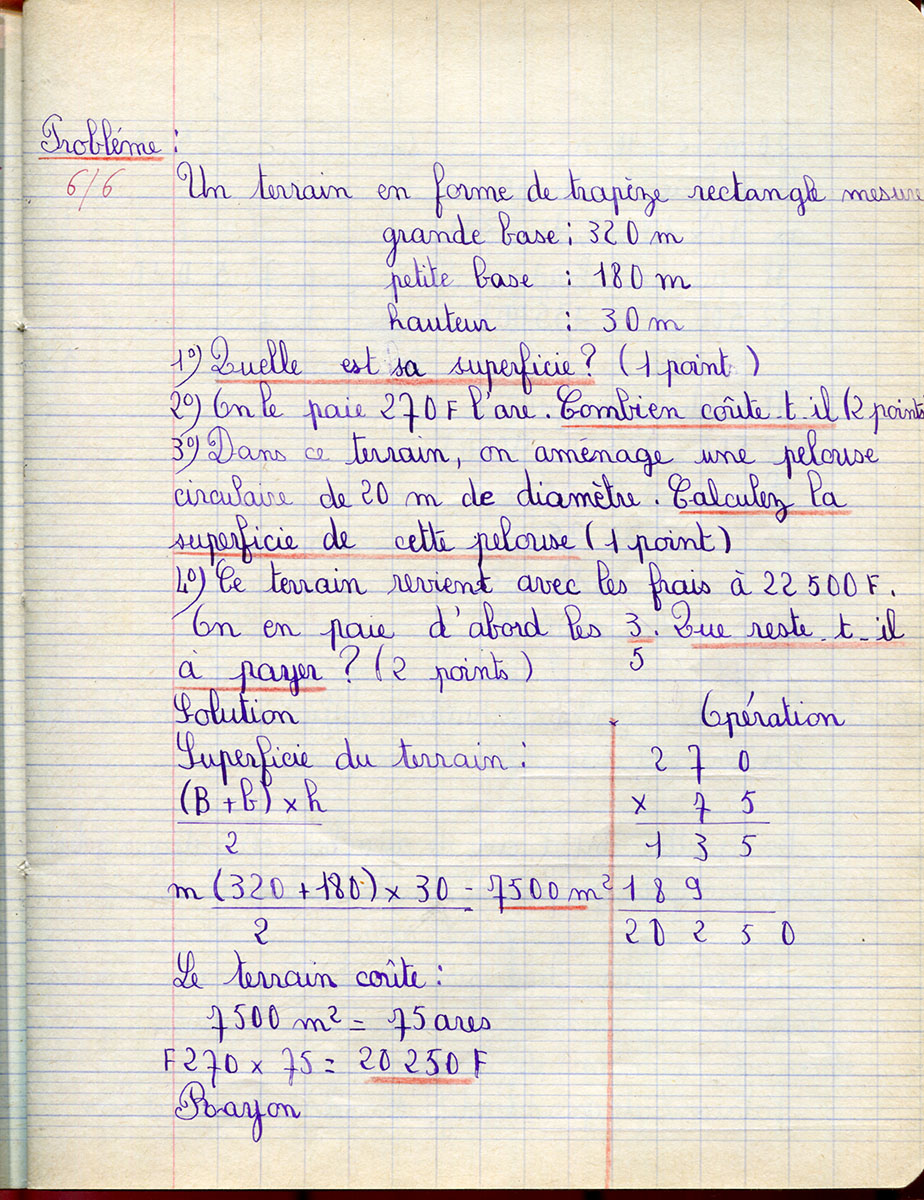 Probléme :
6/6
Un terrain en forme de trapèze rectangle mesure
grande base : 320 m
petite base : 180 m
hauteur : 30 m
1º) Quelle est sa superficie ? (1 point )
2º) On le paie 270 F l'are. Combien coûte-t-il (2 points
3º) Dans ce terrain, on aménage une pelouse
circulaire de 20 m de diamètre. Calculez la
superficie de cette pelouse (1 point)
4º) Ce terrain revient avec les frais à 22 500 F.
On en paie d'abord les 3/5. Que reste-t-il
à payer ? (2 points )
Solution
Superficie du terrain :
(B + b) x h
2
m (320 + 180) x 30 = 7500 m²
2
Le terrain coûte :
7500 m² = 75 ares
F 270 x 75 = 20 250 F
Rayon
Opération
2 7 0
x 7 5
1 3 5
1 8 9
2 0 2 5 0